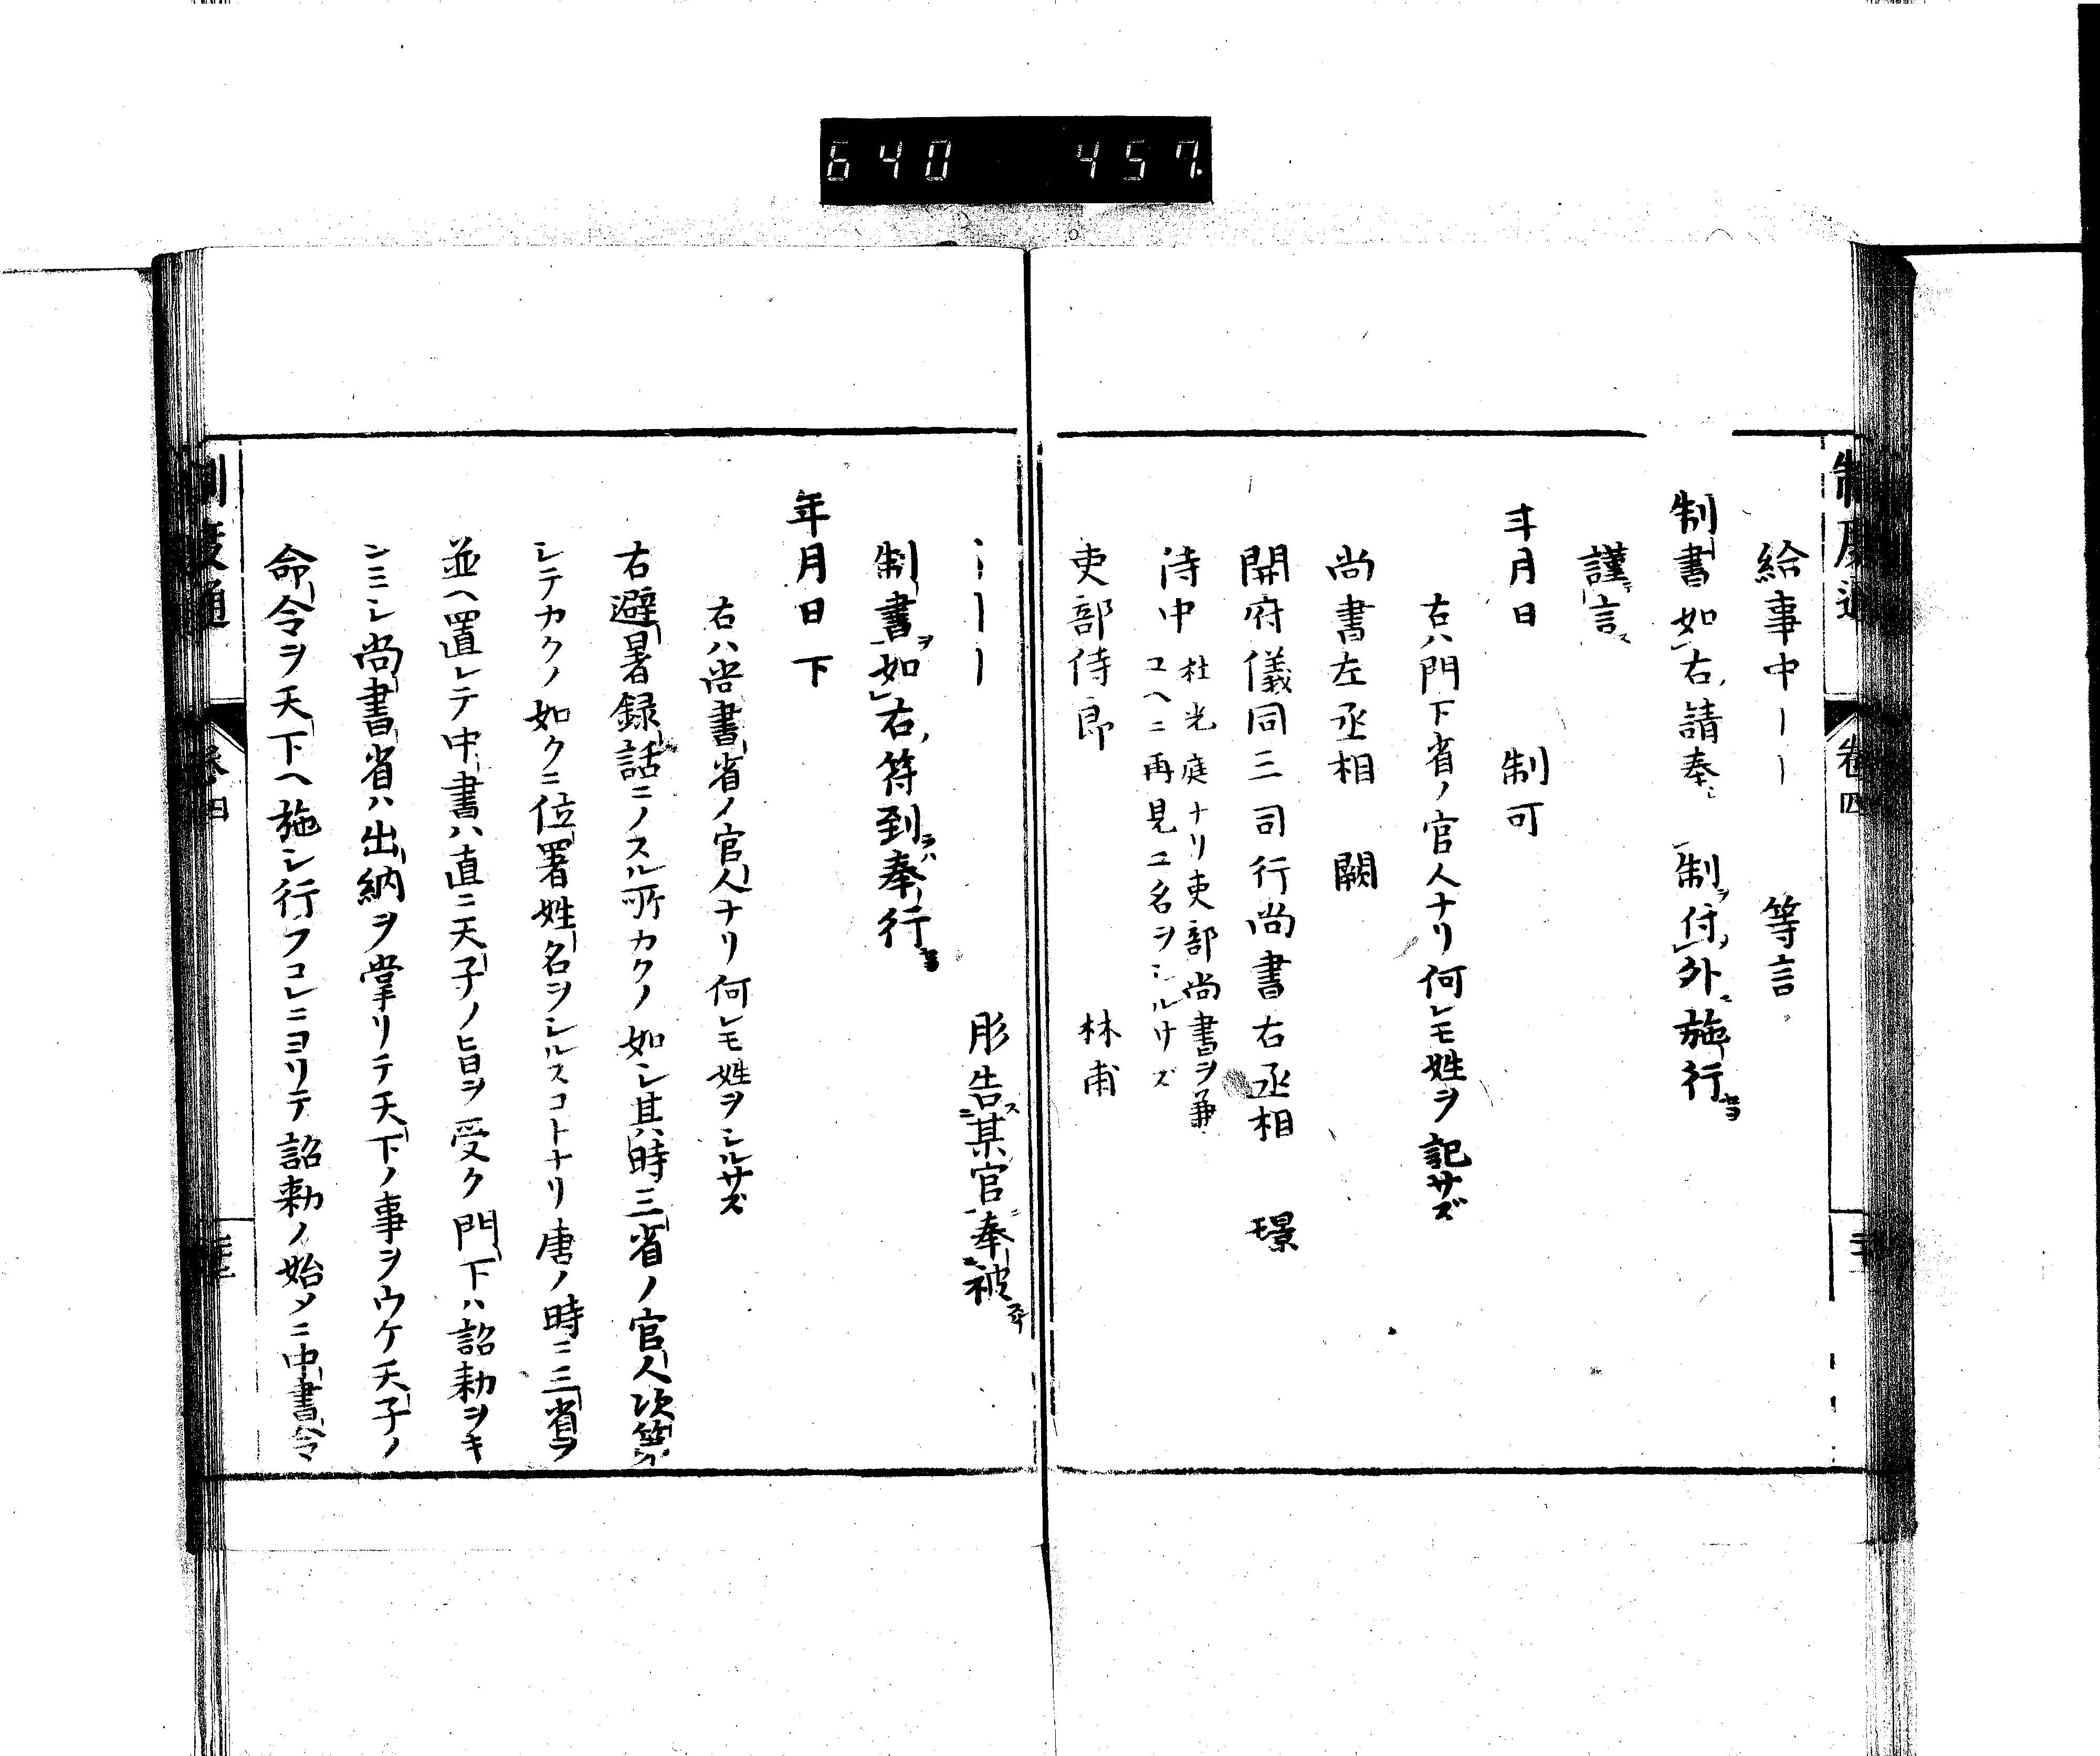 640 457.
制度通
卷四
給事中｜｜　等言
制書如右請奉　制付外施行
謹言
年月日　制可
右ハ門下省ノ官人ナリ何レモ姓ヲ記サズ
尚書左丞相　闕
開府儀同三司行尚書右丞相　璟
侍中 杜光庭ナリ吏部尚書ヲ兼
ユヘニ再見ユ名ヲシルサズ
吏部侍郎　林甫
｜｜｜　彤告某官奉被
制書如右符到奉行
年月日下
右ハ尚書省ノ官人ナリ何レモ姓ヲシルサズ
右避暑録話ニノスル所カクノ如シ其時三省ノ官人次第
シテカクノ如クニ位署姓名ヲシルスコトナリ唐ノ時ニ三省ヲ
並ヘ置レテ中書ハ直ニ天子ノ旨ヲ受ク門下ハ詔勅ヲキ
ンミシ尚書省ハ出納ヲ掌リテ天下ノ事ヲウケ天子ノ
命令ヲ天下ヘ施シ行フコレニヨリテ詔勅ノ始メニ中書令
制度通
卷四